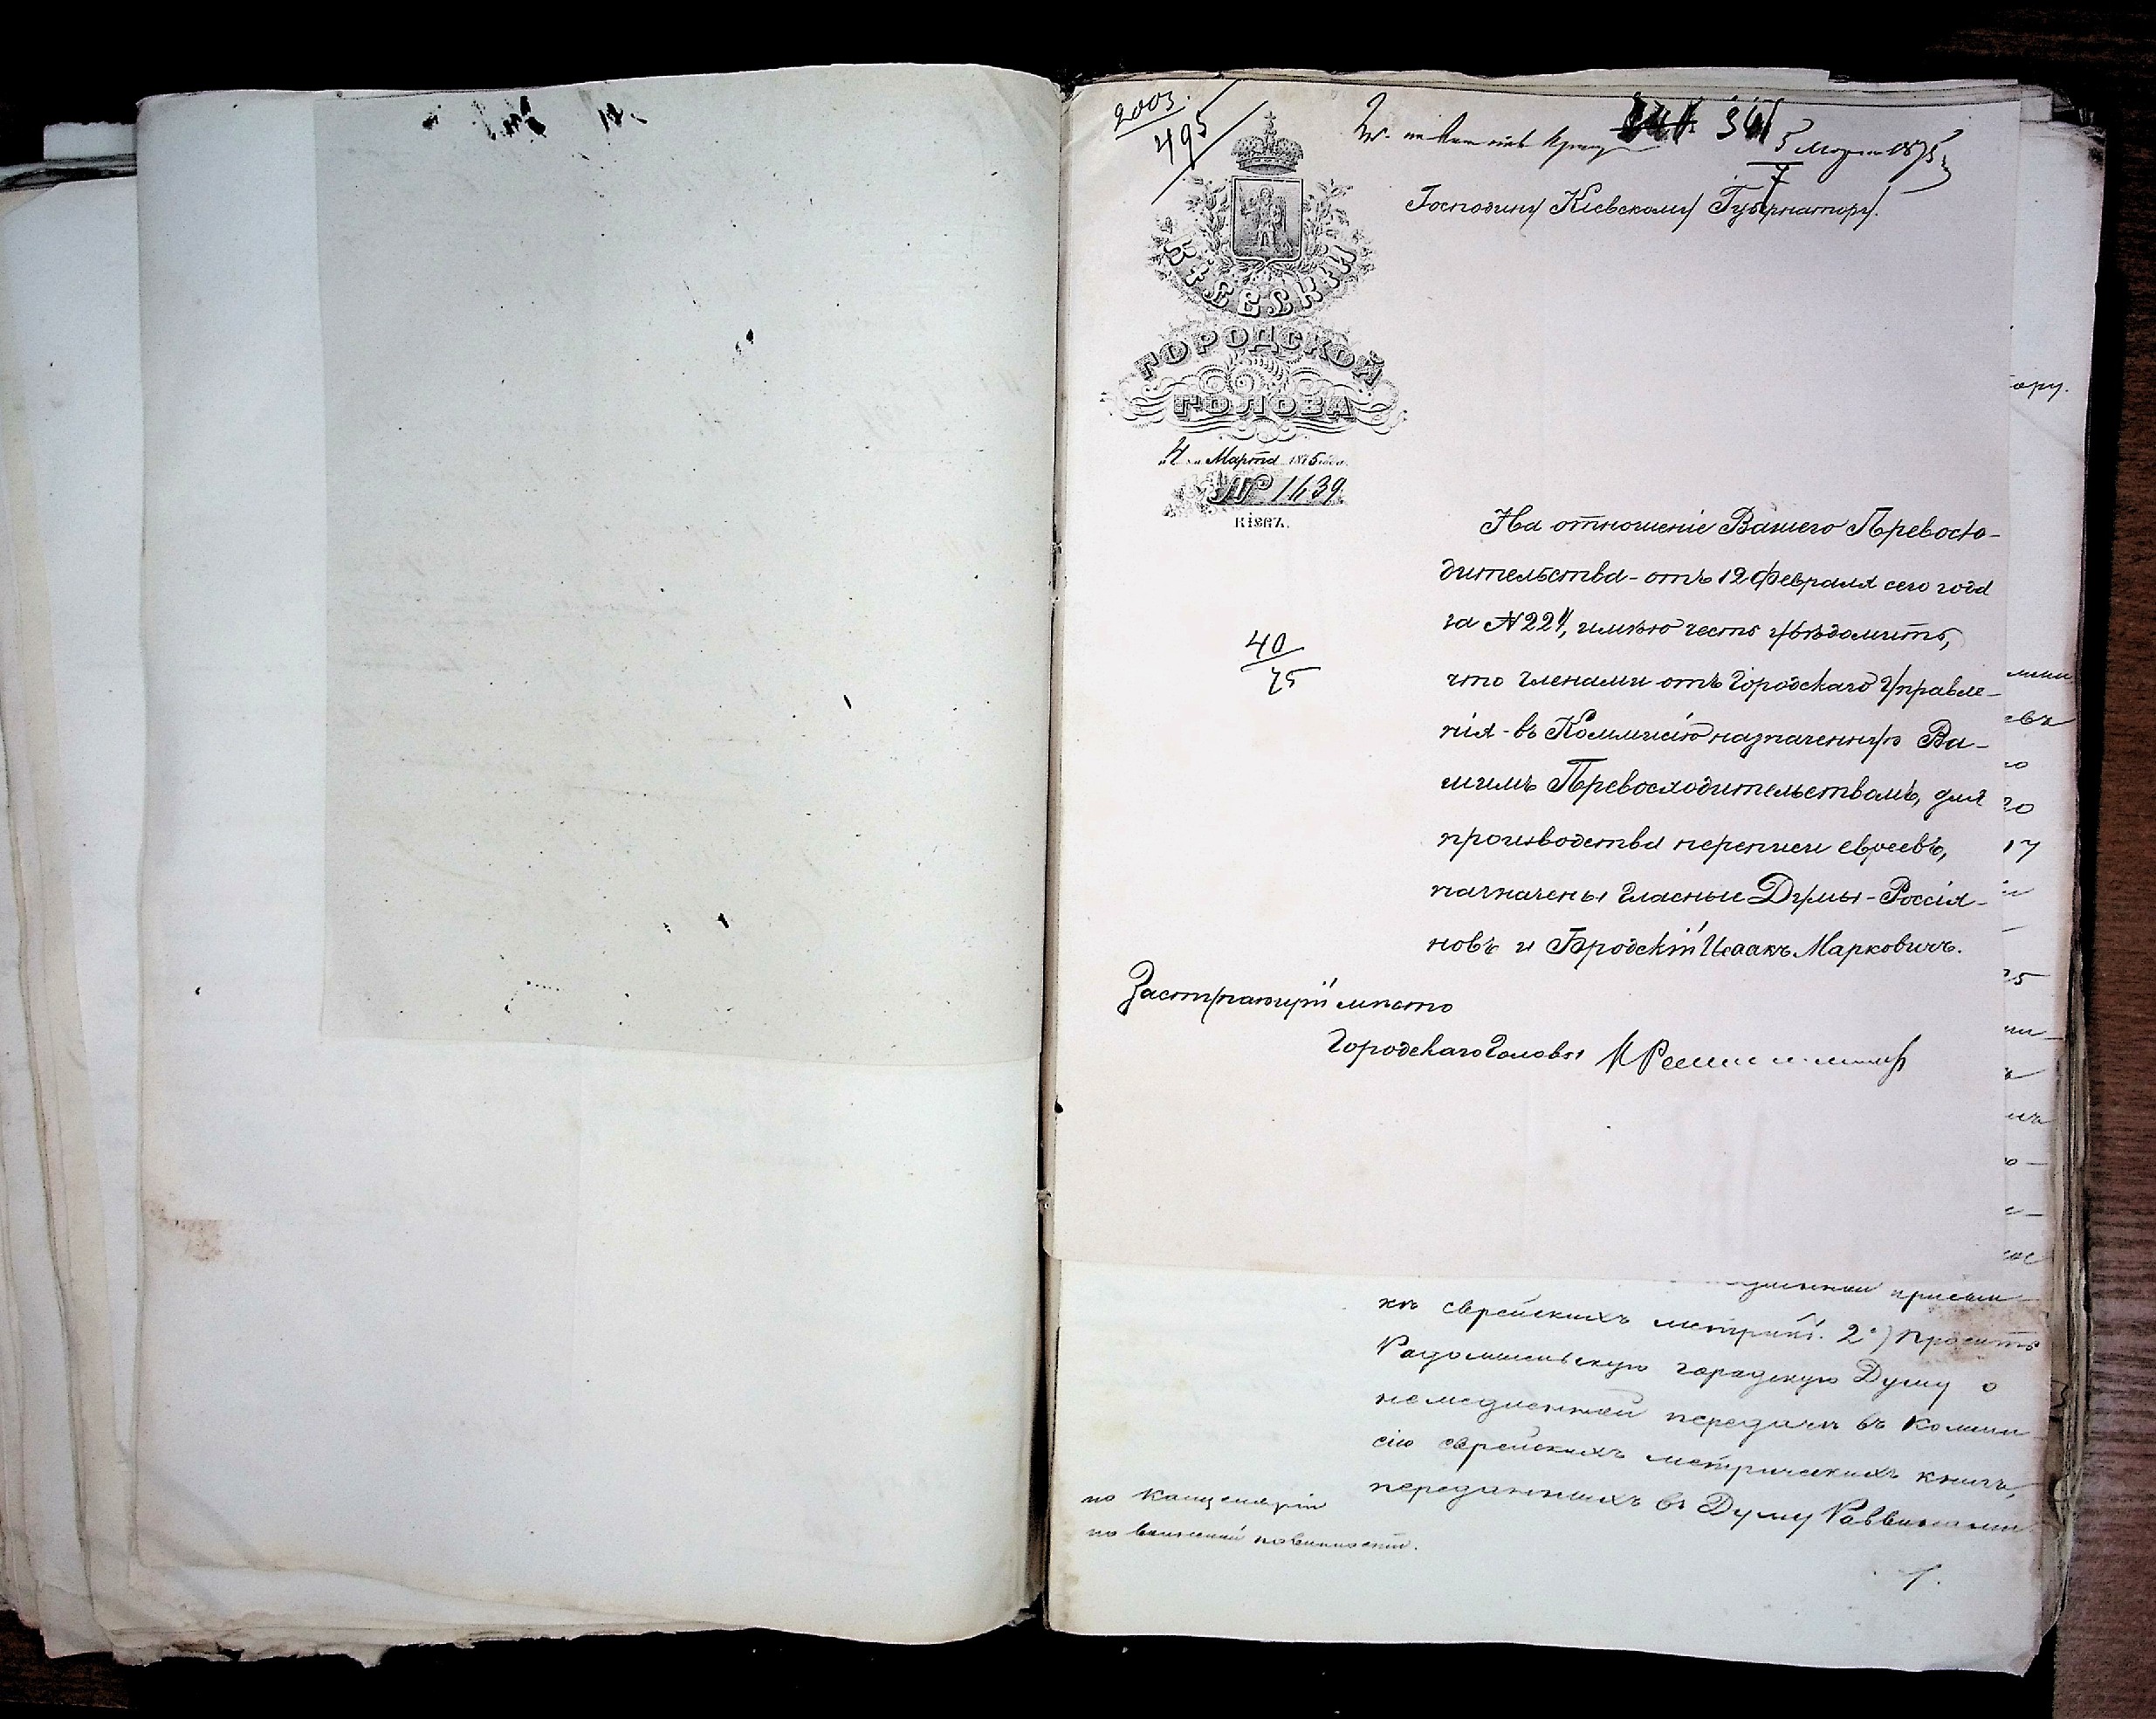 2003.
495
341
5 Марта 1875
7
Господину Кіевскому Губернатору.
КІЕВСКІЙ
ГОРОДСКОЙ
ГОЛОВА
"4" Марта 1875 года.
№ 1439
КІЕВЪ.
40
75
На отношеніе Вашего Превосхо-
дительства - отъ 12 Февраля сего года
за №224, имѣю честь увѣдомить,
что членами отъ Городскаго Управле-
нія - въ Коммисію назначенную Ва-
шимъ Превосходительствомъ, для
производства переписи евреевъ,
назначены гласные Думы - Россія-
новъ и Бродскій Исаакъ Марковичъ.
Заступающій мѣсто
Городскаго Головы
ору.
евъ
го
17
25
присыл
къ еврейскихъ метрикъ. 2) Просить
Радомысльскую городскую Думу о
немедленной передачѣ въ Коммис
сію еврейскихъ метрическихъ книгъ,
переданныхъ въ Думу Раввинами
по Канцеляріи
по воинской повинности.